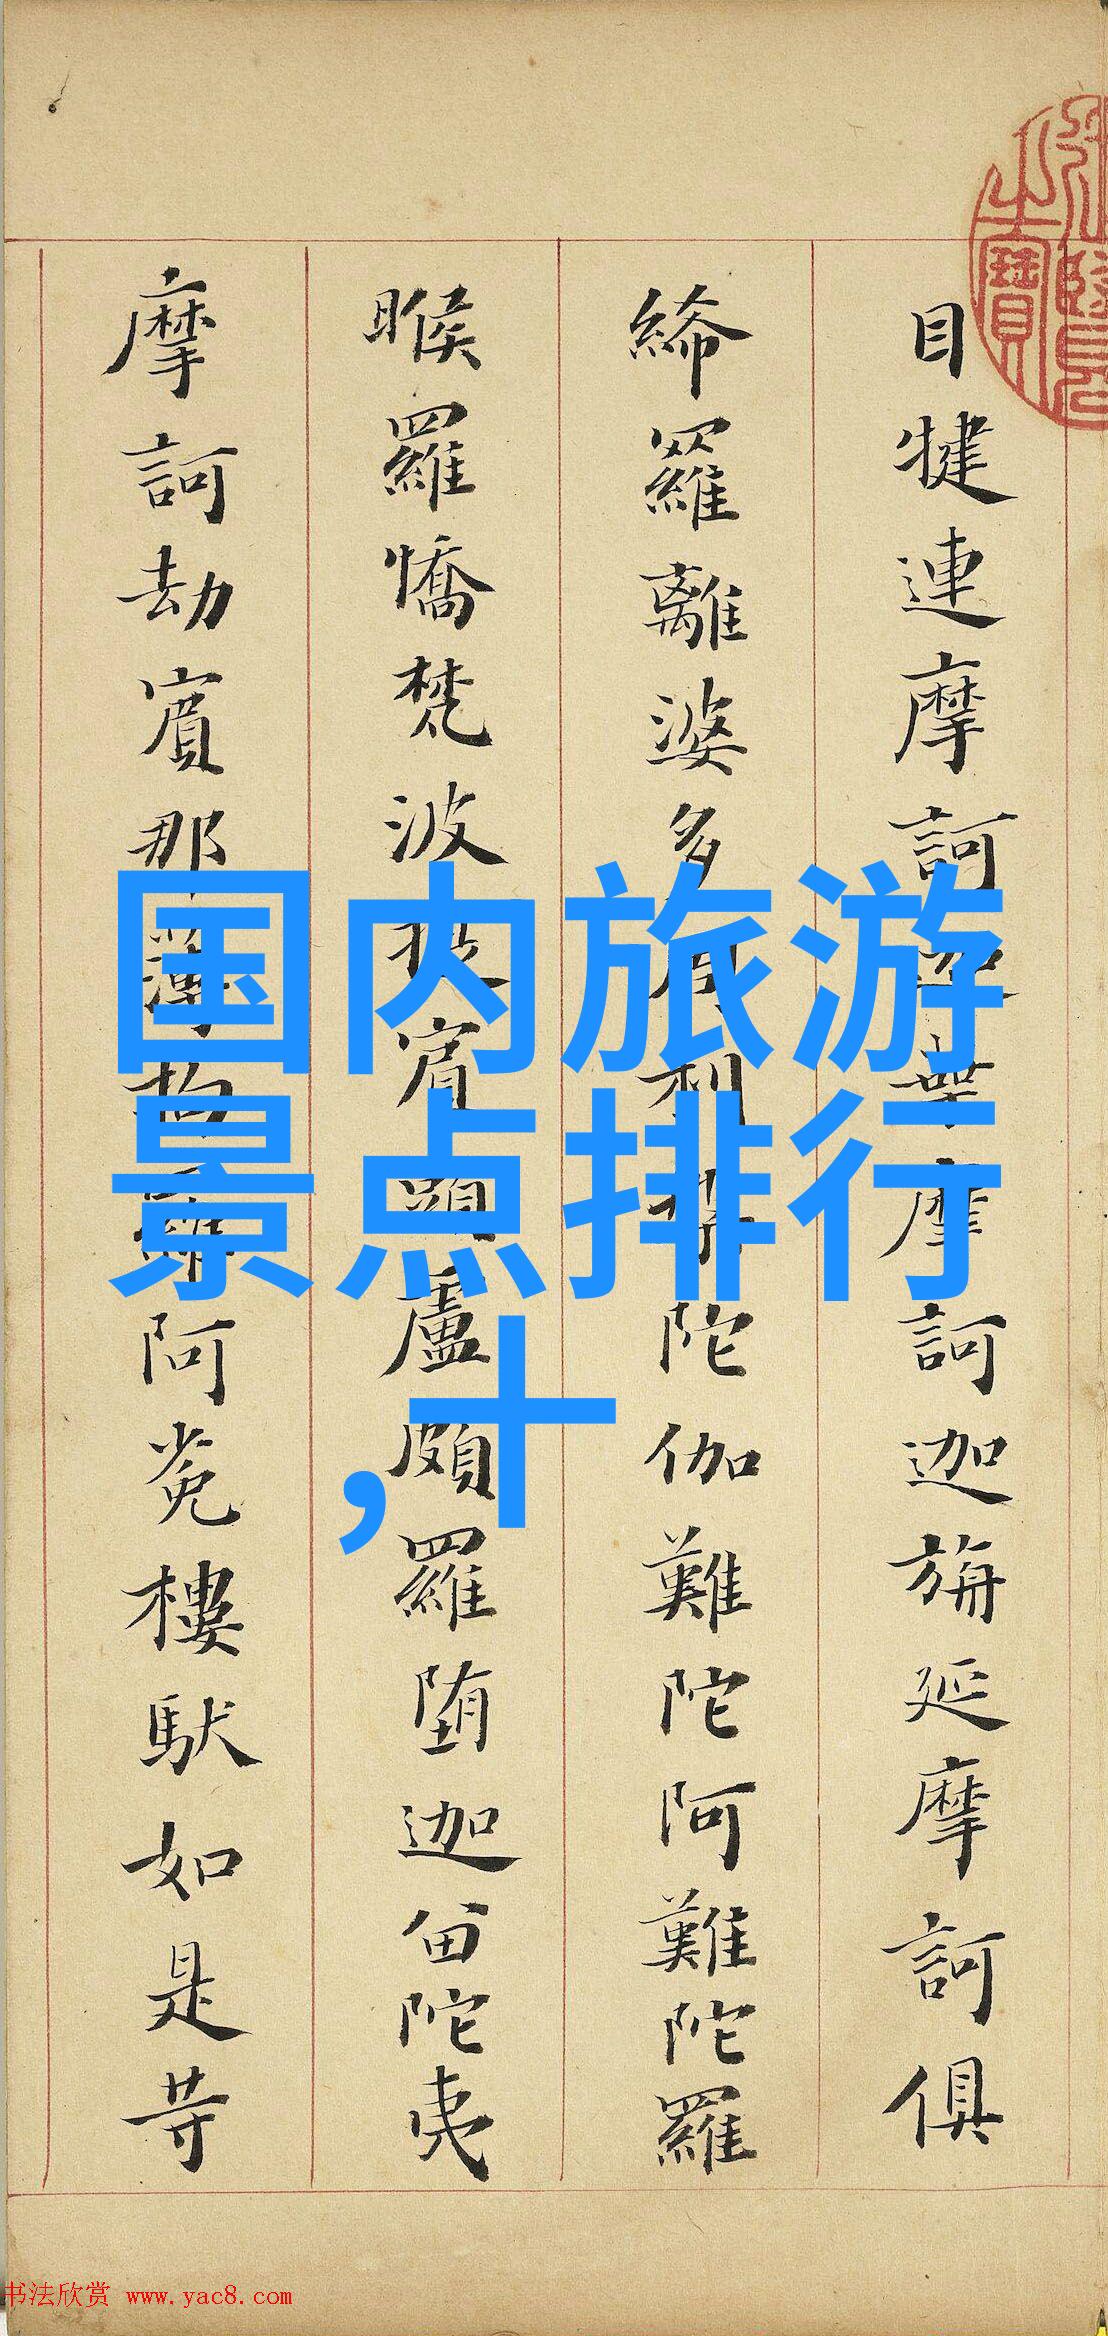 目犍連摩訶迦葉摩訶迦旃延摩訶俱
絺羅離婆多周利槃陀伽難陀阿難陀羅
睺羅憍梵波提賓頭盧頗羅堕迦留陀夷
摩訶劫賓那薄拘羅阿㝹樓馱如是等
国内旅游
景点排行
,十
书法欣赏 www.yac8.com